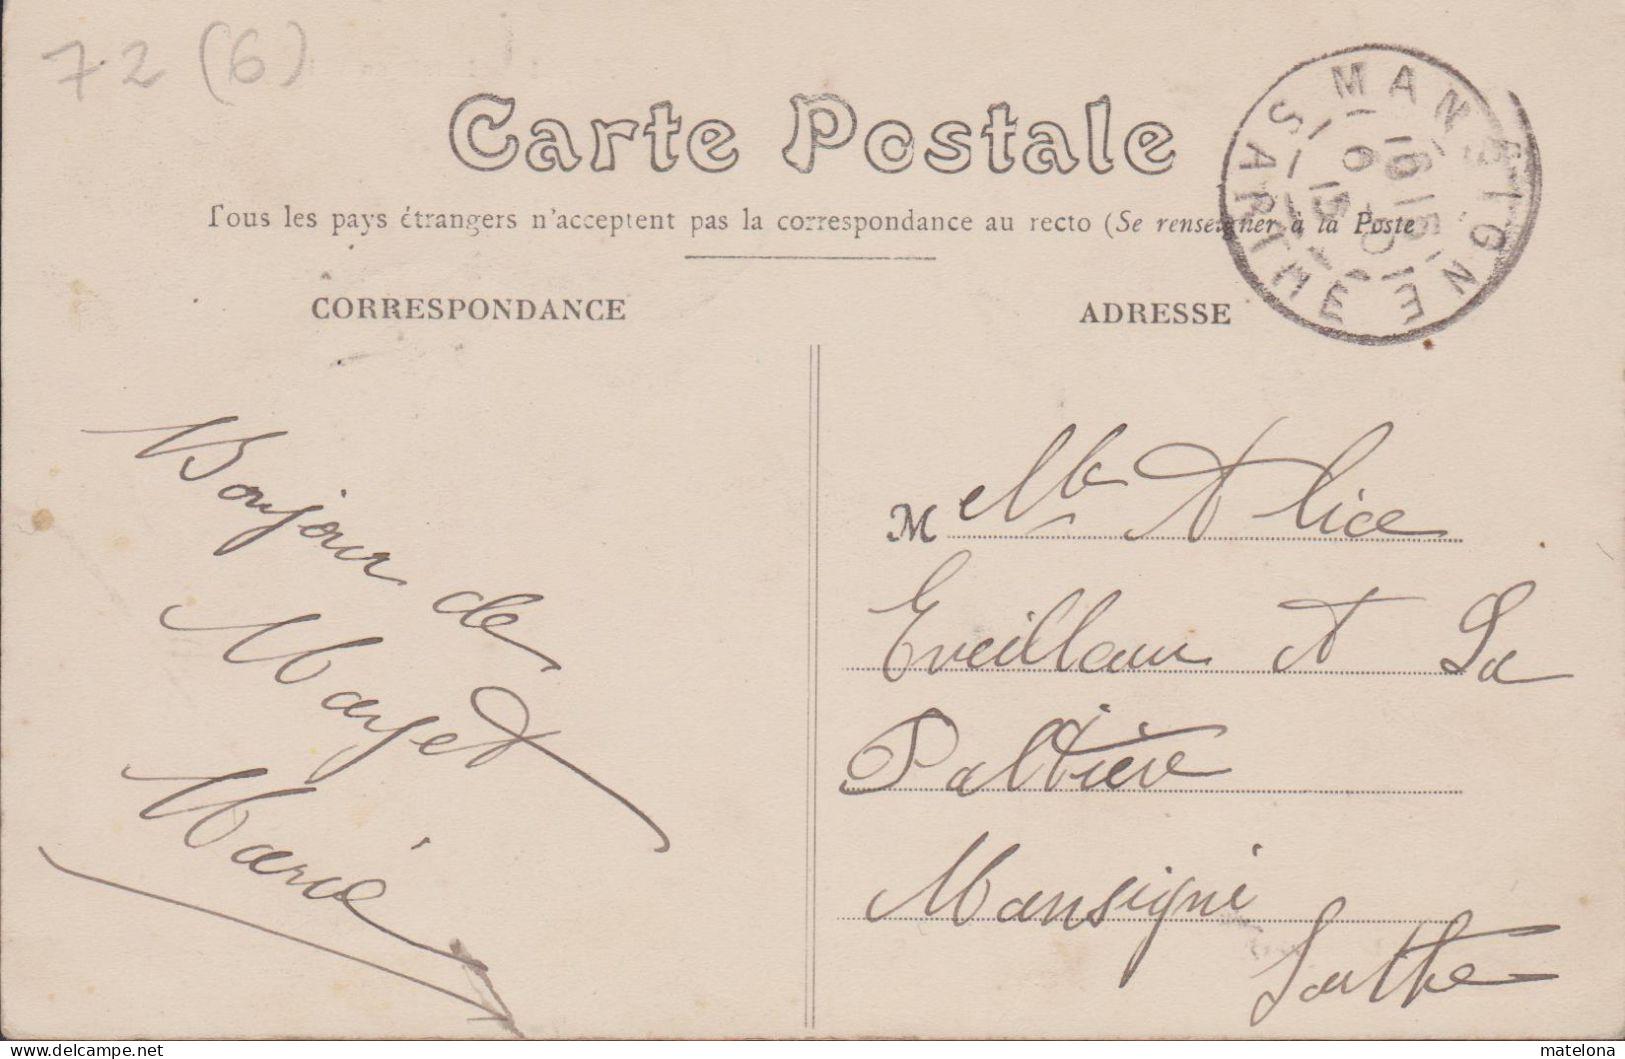 72 (6)
Carte Postale
Tous les pays étrangers n'acceptent pas la correspondance au recto (Se renseigner à la Poste
MANSIGNE
SARTHE
CORRESPONDANCE
ADRESSE
Bonjour de
Mayet
Marie
M elle Alice
Eveilleau A La
Paltière
Mansigné
Sarthe
www.delcampe.net
matelona